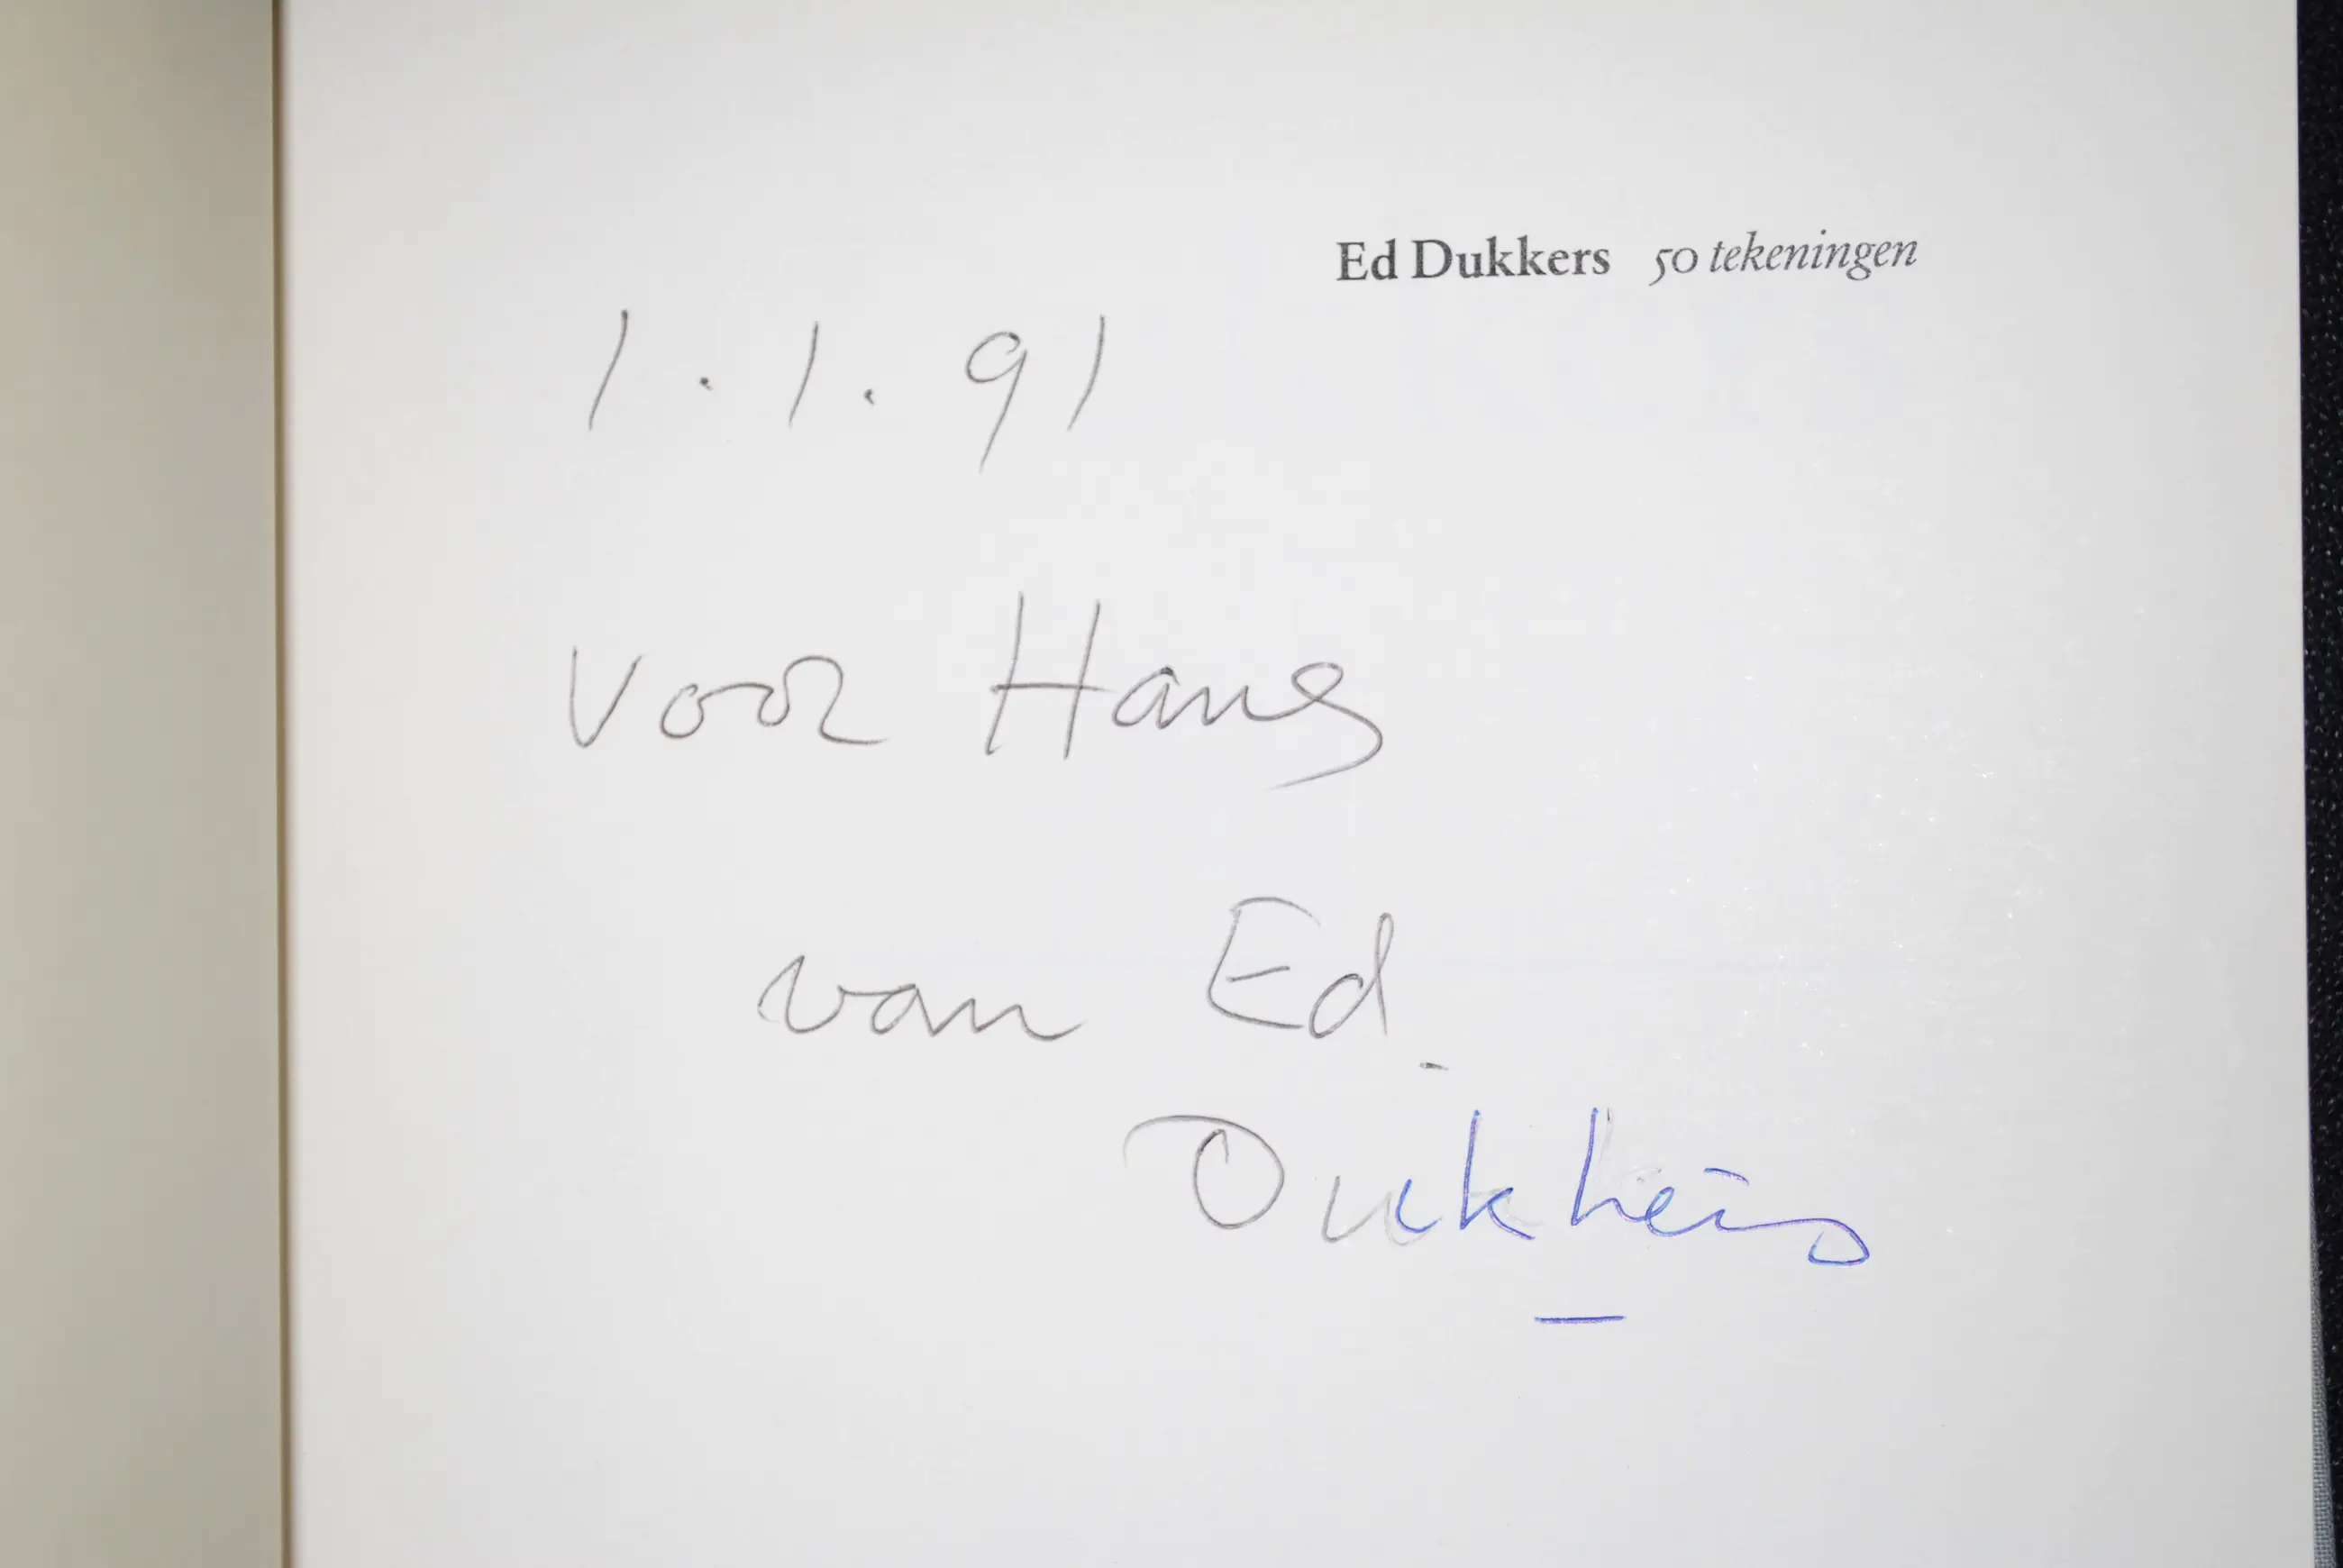 Ed Dukkers 50 tekeningen
1.1.91
voor Hans
van Ed.
Dukkers